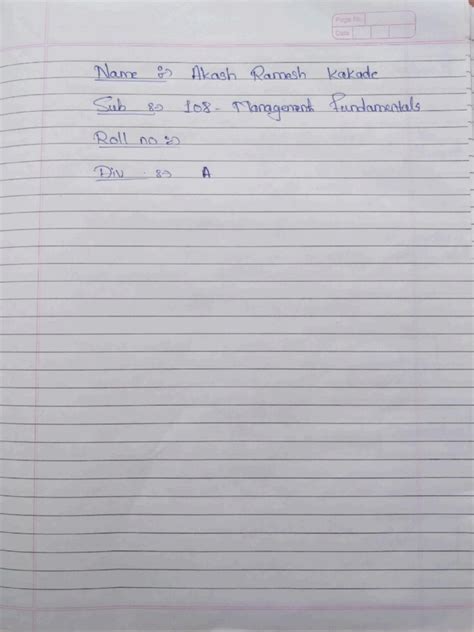 Page No.
Date
Name :-> Akash Ramesh Kakade
Sub :-> 108 - Management Fundamentals
Roll no :->
Div :-> A